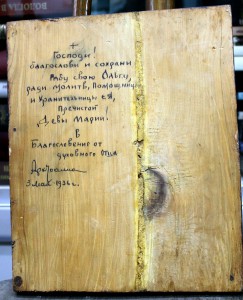 +
Господи!
благослови и сохрани
Рабу свою Ольгу,
ради молитв, Помощницы
и Хранительницы ея,
Пречистой
Девы Марии!
В
Благословение от
духовного отца
3 мая 1936 г.
ВОЛОГДА